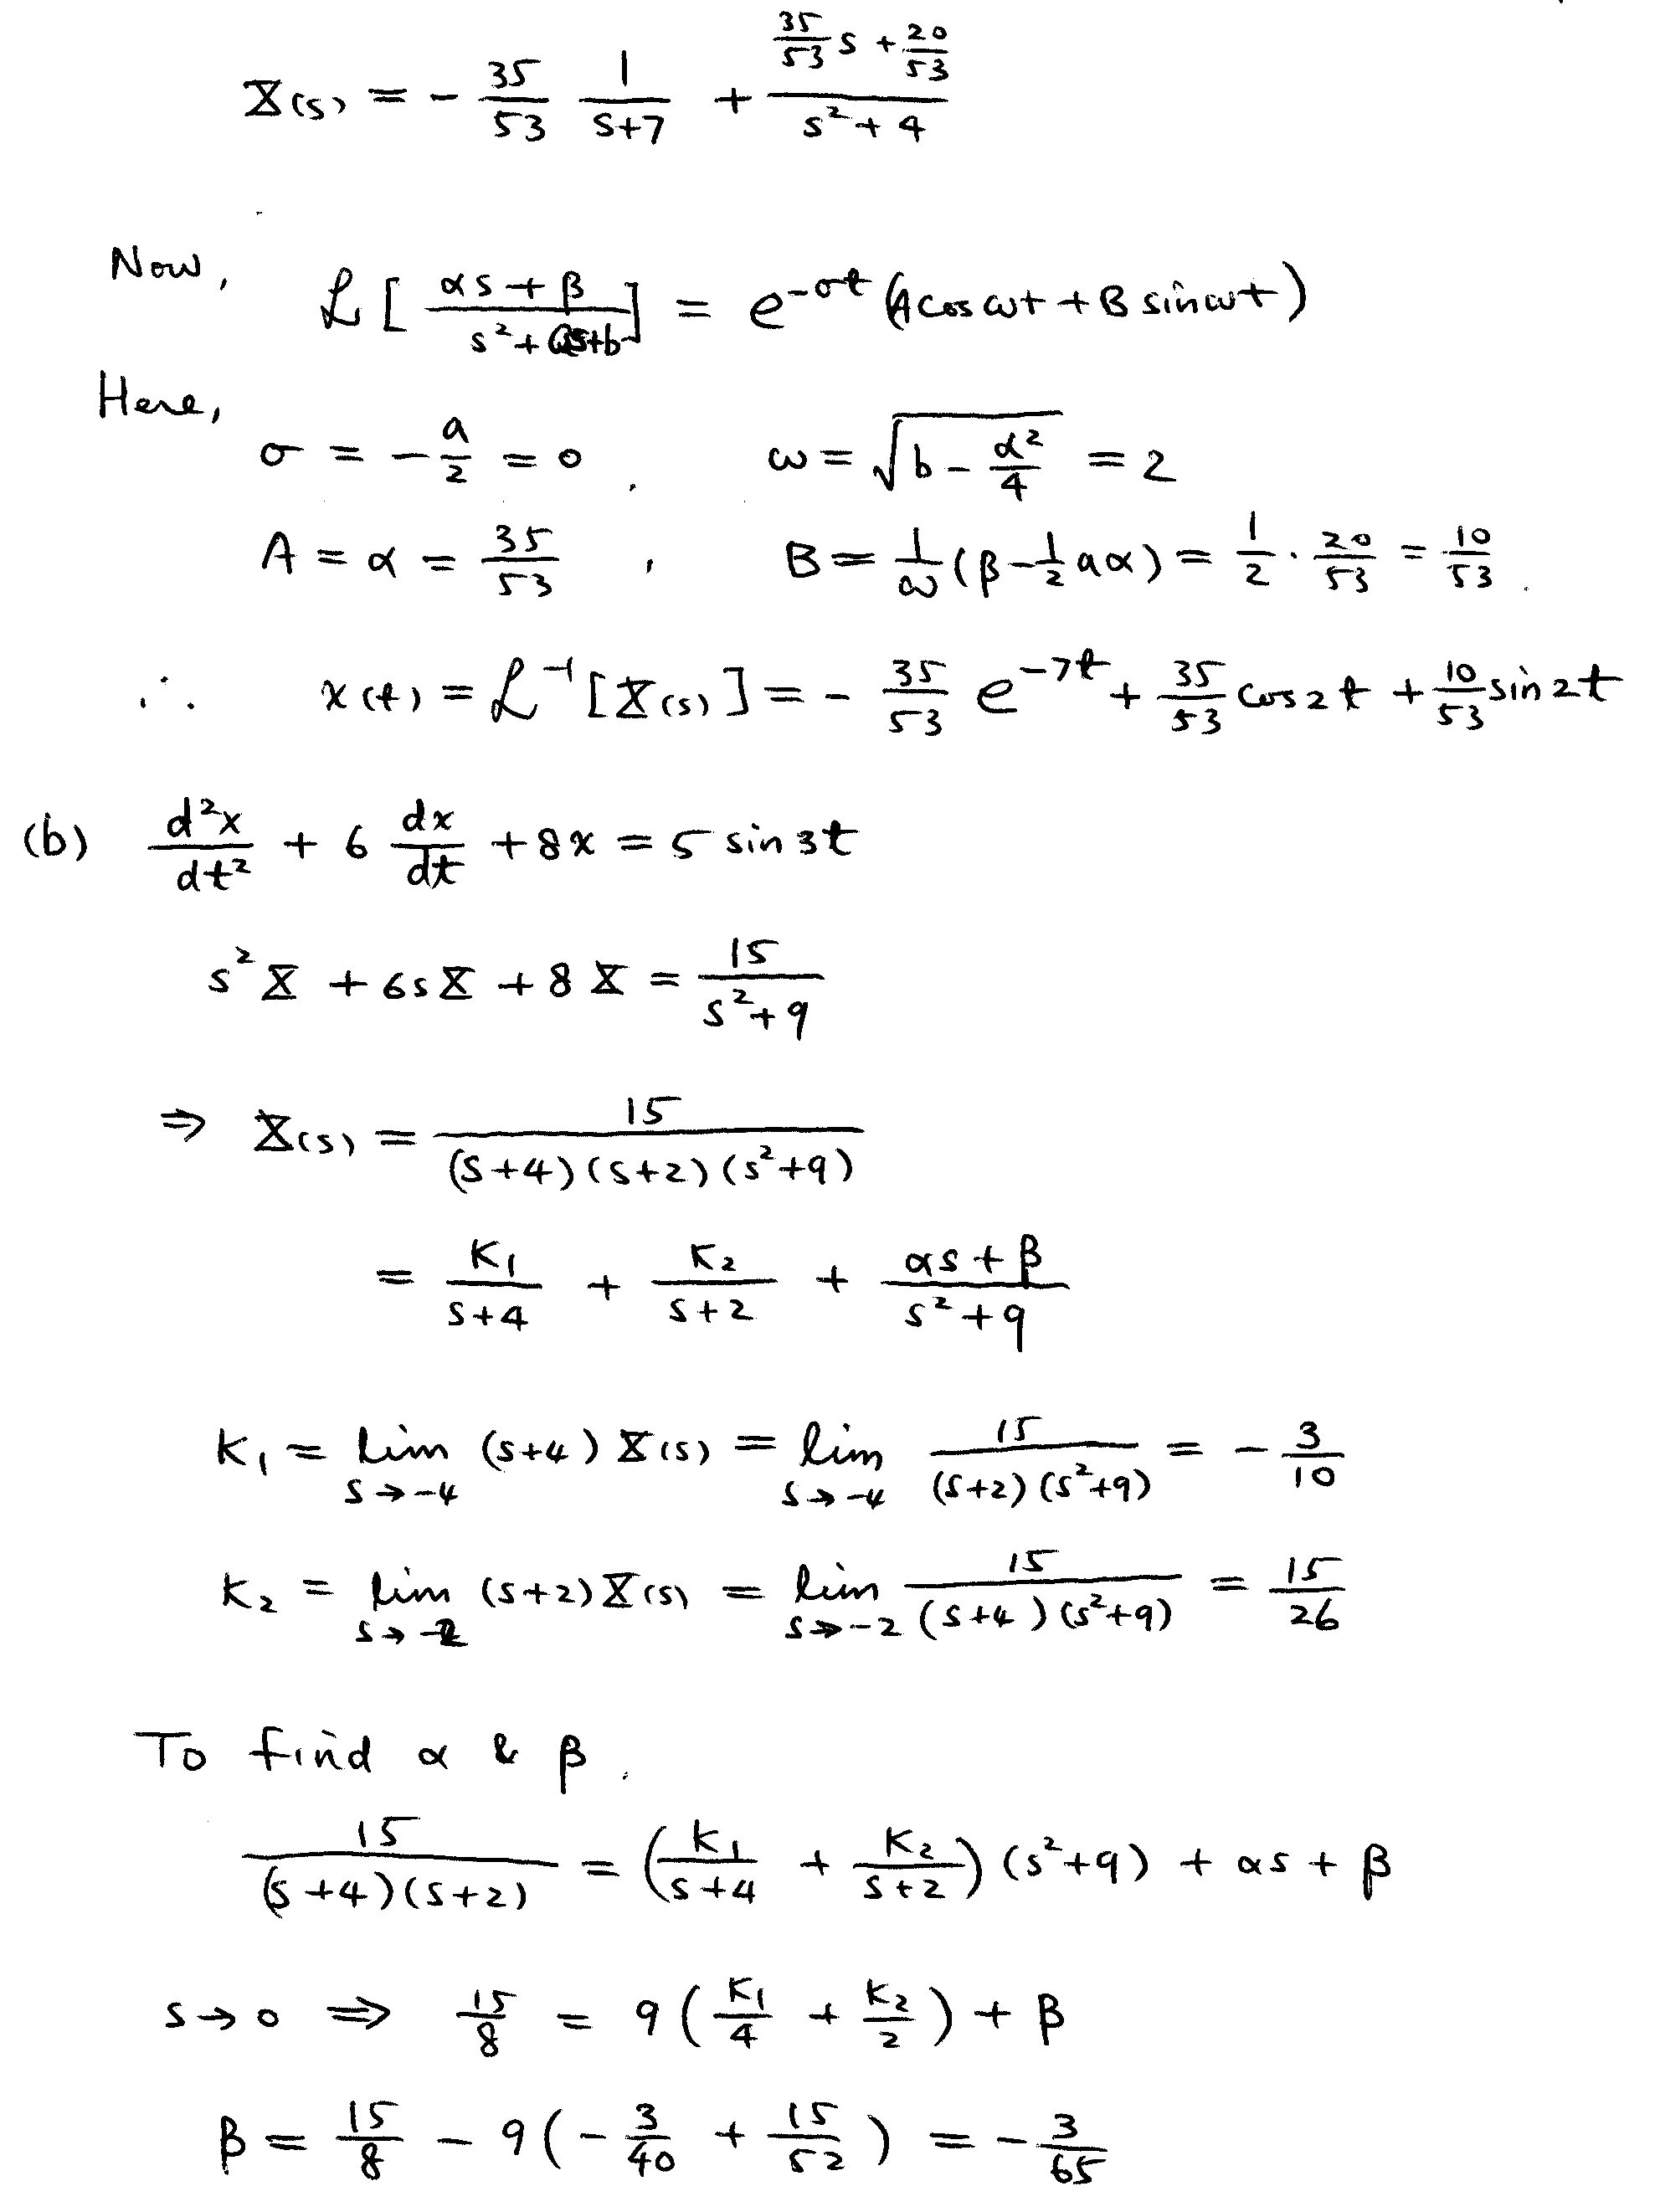 X(s) = - 35/53 1/(s+7) + (35/53 s + 20/53)/(s² + 4)
Now, ℒ[(αs + β)/(s² + as+b)] = e^(-σt) (A cos ωt + B sin ωt)
Here,
σ = - a/2 = 0 , ω = √(b - α²/4) = 2
A = α = 35/53 , B = 1/ω (β - 1/2 aα) = 1/2 · 20/53 = 10/53 .
∴ x(t) = ℒ⁻¹[X(s)] = - 35/53 e^(-7t) + 35/53 cos2t + 10/53 sin2t
(b) d²x/dt² + 6 dx/dt + 8x = 5 sin 3t
s²X + 6sX + 8X = 15/(s²+9)
⇒ X(s) = 15/((s+4)(s+2)(s²+9))
= K₁/(s+4) + K₂/(s+2) + (αs + β)/(s²+9)
K₁ = lim s→-4 (s+4) X(s) = lim s→-4 15/((s+2)(s²+9)) = - 3/10
K₂ = lim s→-2 (s+2) X(s) = lim s→-2 15/((s+4)(s²+9)) = 15/26
To find α & β.
15/((s+4)(s+2)) = (K₁/(s+4) + K₂/(s+2)) (s²+9) + αs + β
s→0 ⇒ 15/8 = 9 (K₁/4 + K₂/2) + β
β = 15/8 - 9 (- 3/40 + 15/52) = - 3/65